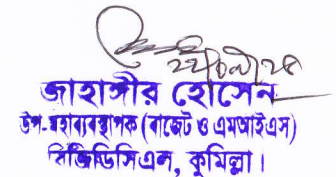 জাহাঙ্গীর হোসেন
উপ-মহাব্যবস্থাপক (বাজেট ও এমআইএস)
বিজিডিসিএল, কুমিল্লা।